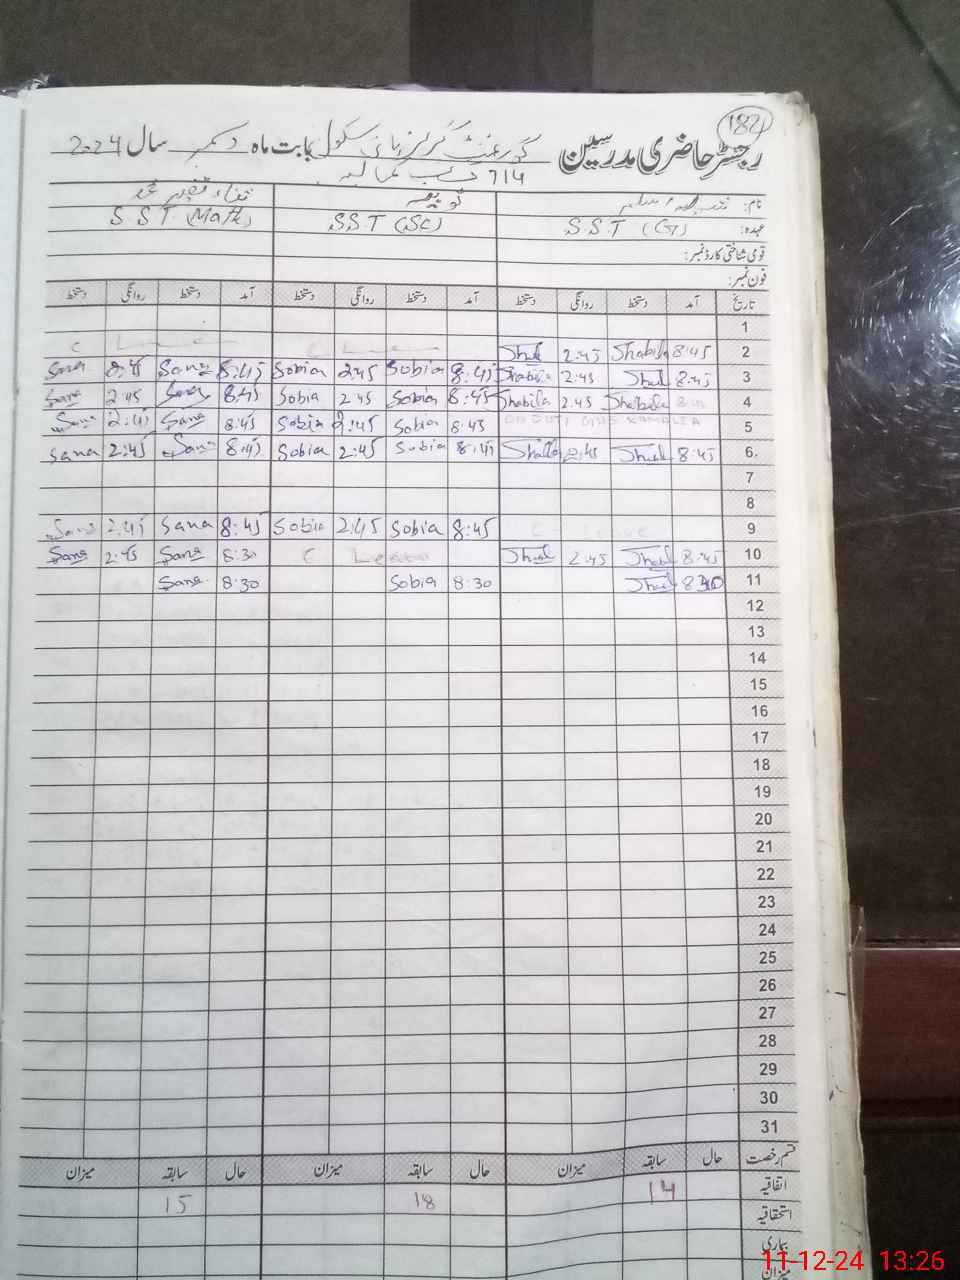 182
رجسٹر حاضری مدرسین گورنمنٹ گرلز ہائی سکول بابت ماہ دسمبر سال 2024
714 گ ب کمالیہ
نام: ثوبیہ
عہدہ: S.S.T S.S.T (SC) S.S.T (Math)
قومی شناختی کارڈ نمبر:
فون نمبر:
تاریخ آمد دستخط روانگی دستخط آمد دستخط روانگی دستخط آمد دستخط روانگی دستخط
1
2 8:45 Shabila 2:45
3 8:45 2:45 Shabila 8:45 Sobia 2:45 Sobia 8:45 Sana 2:45 Sana
4 8:45 Shabila 2:45 Shabila 8:45 Sobia 2:45 Sobia 8:45 Sana 2:45 Sana
5 ON DUTY GHS KAMALIA 8:45 Sobia 2:45 Sobia 8:45 Sana 2:45 Sana
6. 8:45 2:45 8:45 Sobia 2:45 Sobia 8:45 Sana 2:45 Sana
7
8
9 C- Leave 8:45 Sobia 2:45 Sobia 8:45 Sana 2:45 Sana
10 8:45 2:45 C Leave 8:30 Sana 2:45 Sana
11 8:30 Sobia 8:30 Sana
12
13
14
15
16
17
18
19
20
21
22
23
24
25
26
27
28
29
30
31
قسم رخصت حال سابقہ میزان حال سابقہ میزان حال سابقہ میزان
اتفاقیہ 14 18 15
استحقاقیہ
بیماری
میزان
11-12-24 13:26